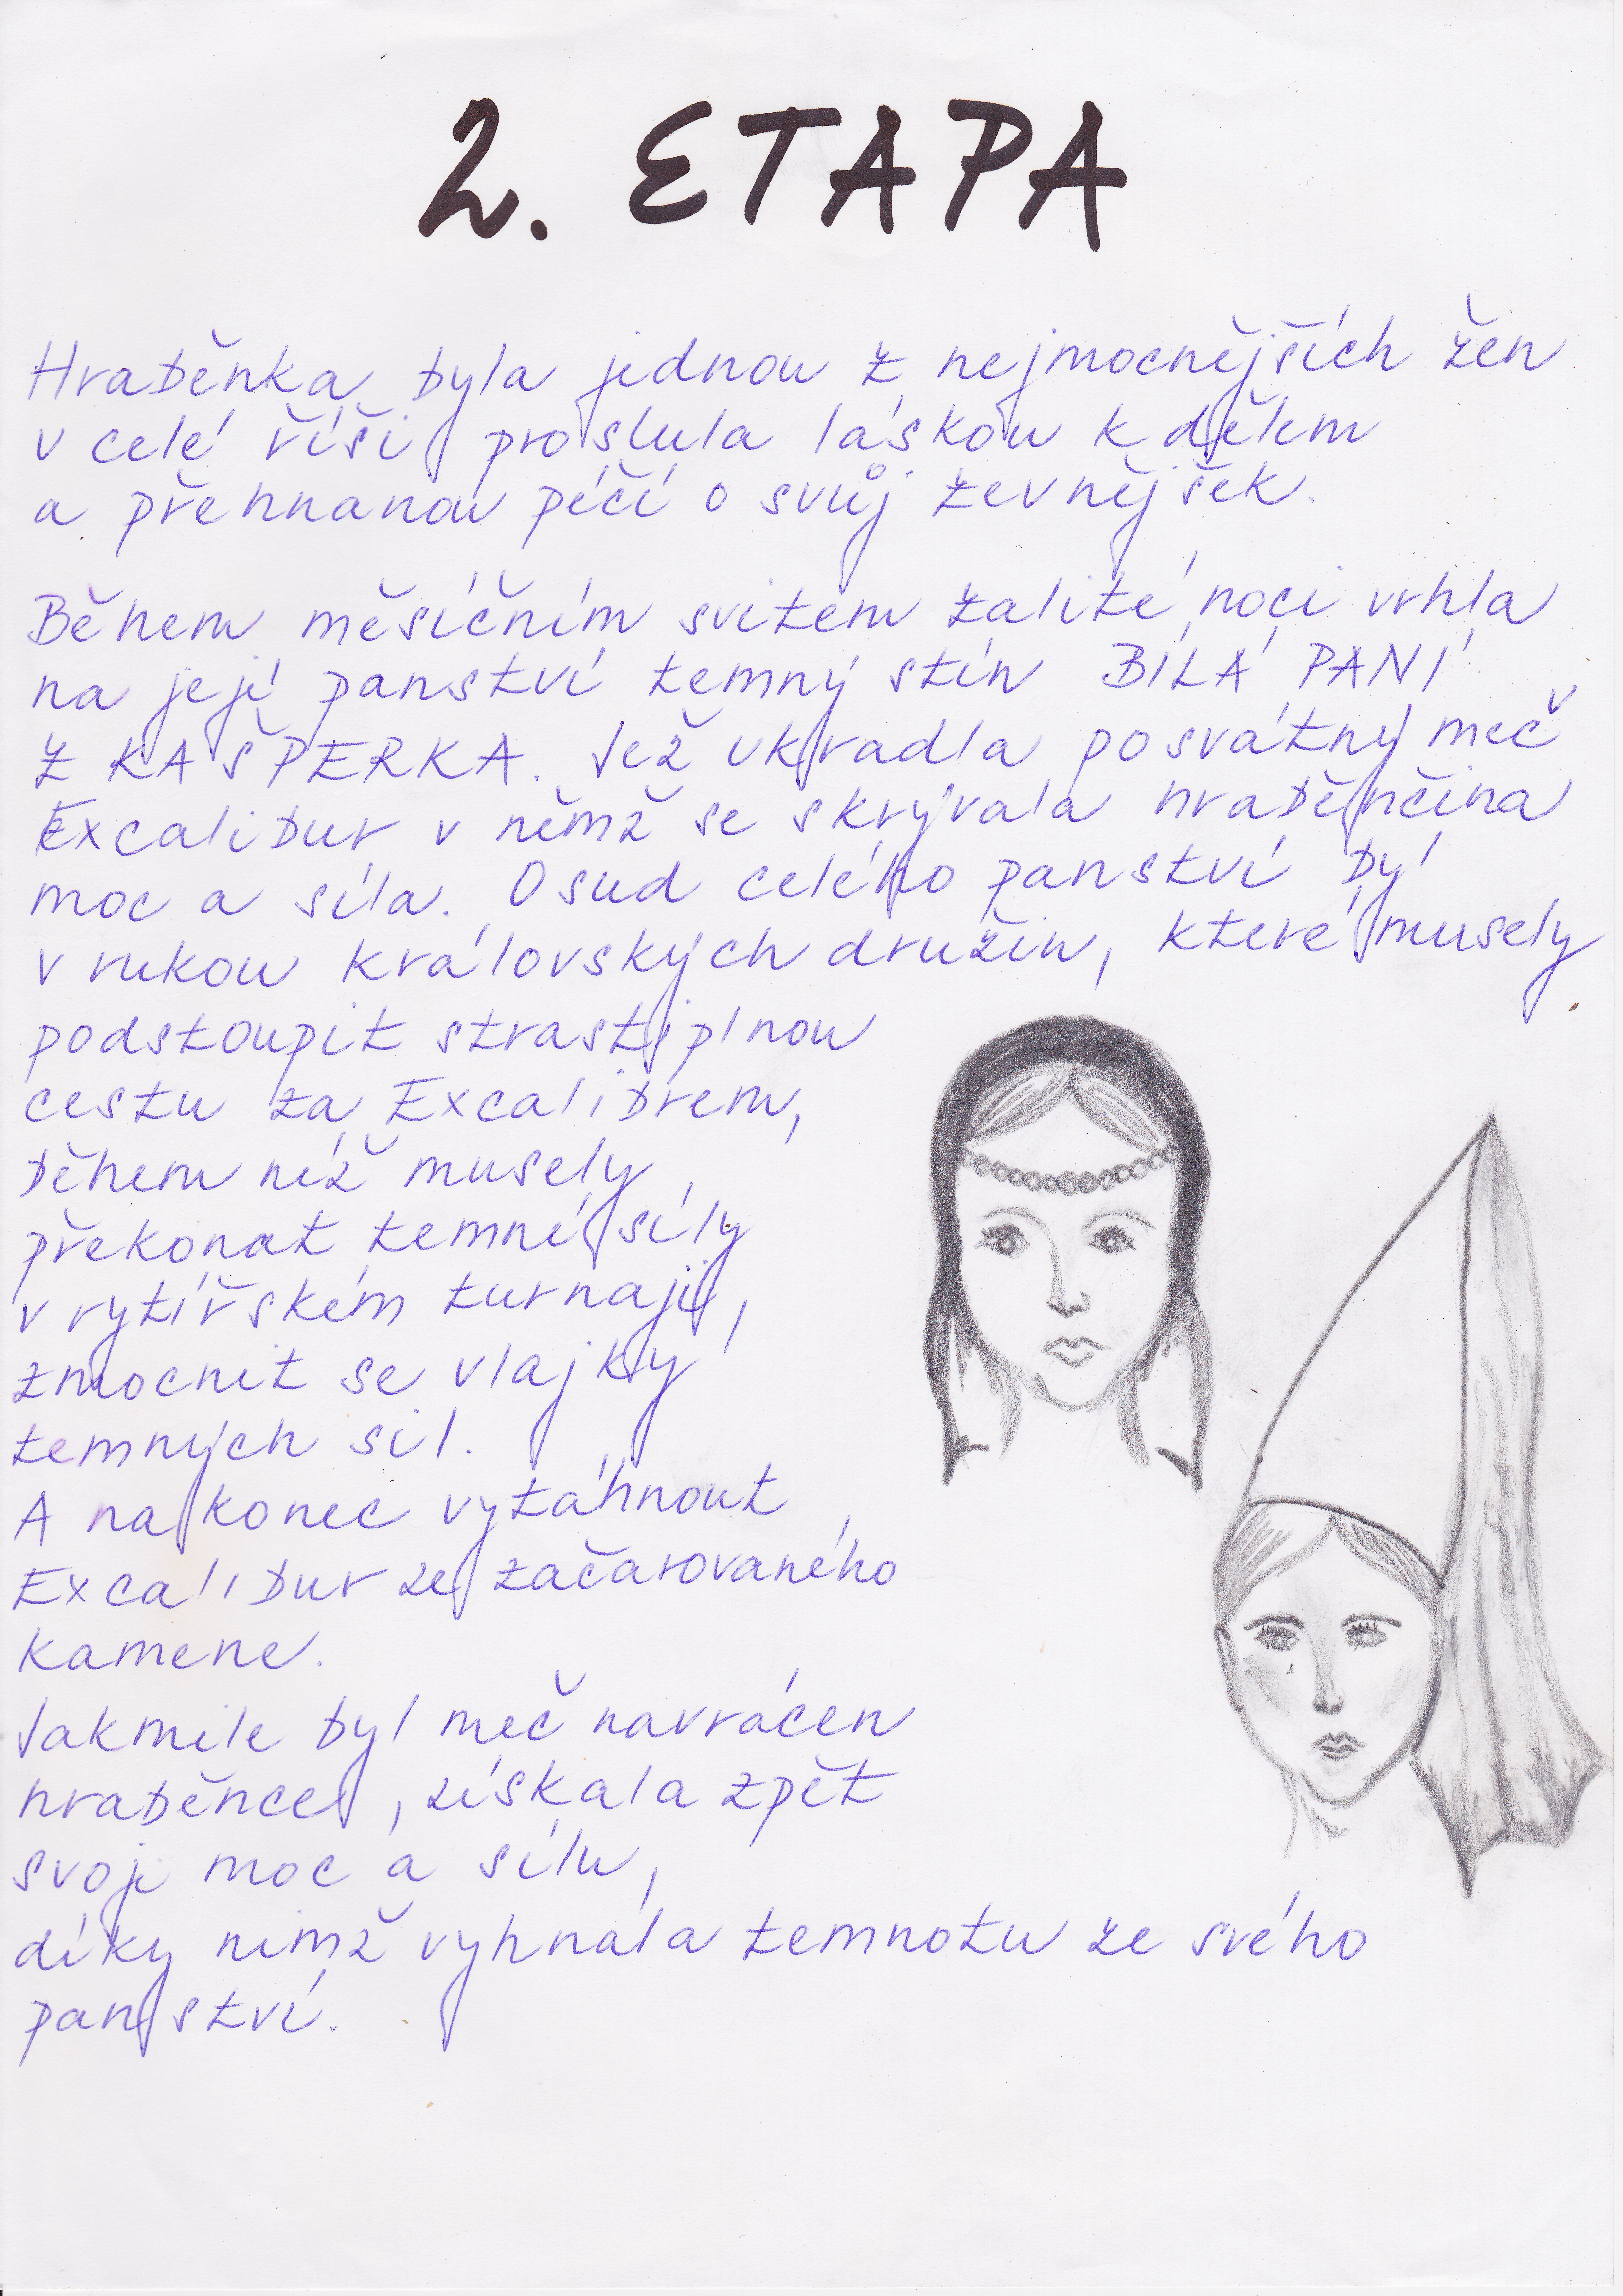 2. ETAPA
Hraběnka byla jednou z nejmocnějších žen
v celé říši, proslula láskou k dětem
a přehnanou péčí o svůj zevnějšek.
Během měsíčním svitem zalité noci vrhla
na její panství temný stín BÍLÁ PANÍ
Z KAŠPERKA. Jež ukradla posvátný meč
Excalibur v němž se skrývala hraběnčina
moc a síla. Osud celého panství byl
v rukou královských družin, které musely
podstoupit strastiplnou
cestu za Excalibrem,
během níž musely
překonat temné síly
v rytířském turnaji,
zmocnit se vlajky
temných sil.
A nakonec vytáhnout
Excalibur ze začarovaného
kamene.
Jakmile byl meč navrácen
hraběnce, získala zpět
svoji moc a sílu,
díky nimž vyhnala temnotu ze svého
panství.